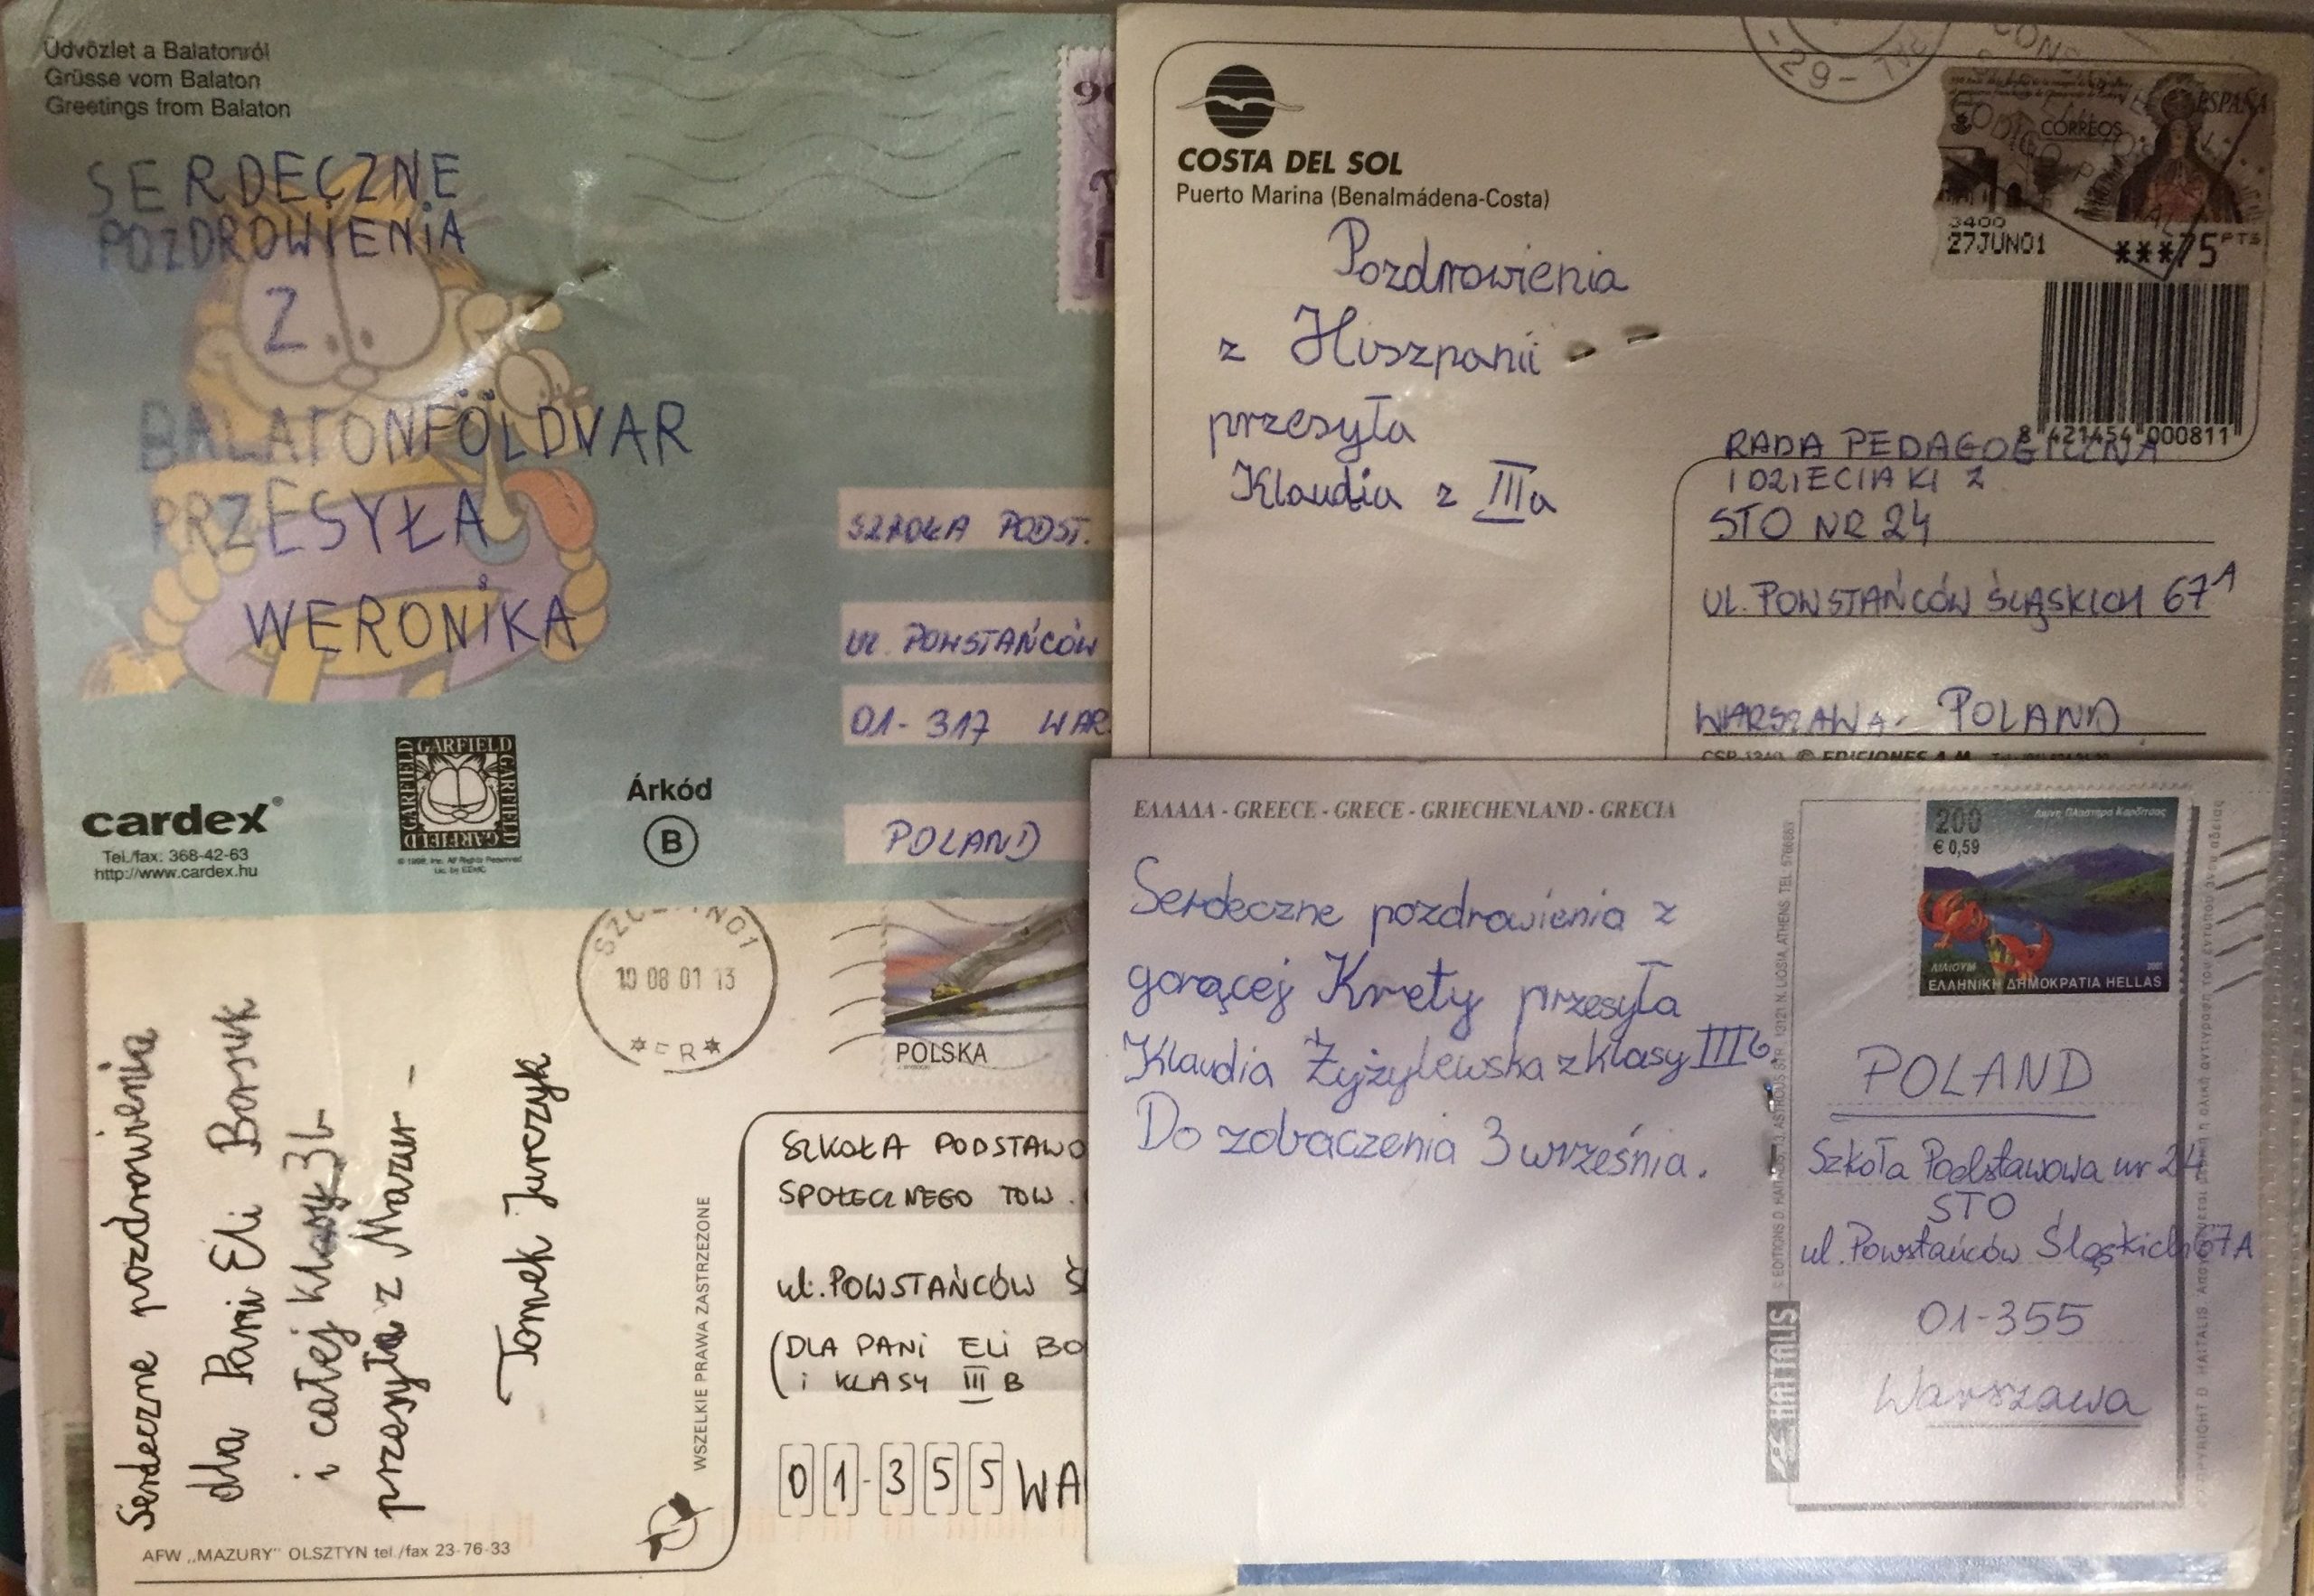 Üdvözlet a Balatonról
Grüsse vom Balaton
Greetings from Balaton
SERDECZNE
POZDROWIENIA
Z
BALATONFÖLDVAR
PRZESYŁA
WERONIKA
SZKOŁA PODST.
UL. POWSTAŃCÓW
01-317 WAR
POLAND
cardex®
Tel./fax: 368-42-63
http://www.cardex.hu
GARFIELD
GARFIELD
GARFIELD
GARFIELD
Árkód
B
COSTA DEL SOL
Puerto Marina (Benalmádena-Costa)
Pozdrowienia
z Hiszpanii
przesyła
Klaudia z IIIa
-29-
ESPAÑA
CORREOS
3400
27JUN01
***75 PTS
8 421454 000811
RADA PEDAGOGICZNA
I DZIECIAKI Z
STO NR 24
UL. POWSTAŃCÓW ŚLĄSKICH 67A
WARSZAWA - POLAND
Serdeczne pozdrowienia
dla Pani Eli Borsuk
i całej klasy 3b
przesyła z Mazur -
- Tomek Jurczyk
10 08 01 13
POLSKA
WSZELKIE PRAWA ZASTRZEŻONE
SZKOŁA PODSTAWO
SPOŁECZNEGO TOW.
ul. POWSTAŃCÓW Ś
(DLA PANI ELI BO
i KLASY III B
01-355 WA
AFW „MAZURY" OLSZTYN tel./fax 23-76-33
ΕΛΛΑΔΑ - GREECE - GRECE - GRIECHENLAND - GRECIA
Serdeczne pozdrowienia z
gorącej Krety przesyła
Klaudia Żyżylewska z klasy IIIb
Do zobaczenia 3 września.
200
€ 0,59
Λίμνη Πλαστήρα Καρδίτσας
ΛΙΛΙΟΥΜ
ΕΛΛΗΝΙΚΗ ΔΗΜΟΚΡΑΤΙΑ HELLAS
HAITALIS
POLAND
Szkoła Podstawowa nr 24
STO
ul. Powstańców Śląskich 67A
01-355
Warszawa